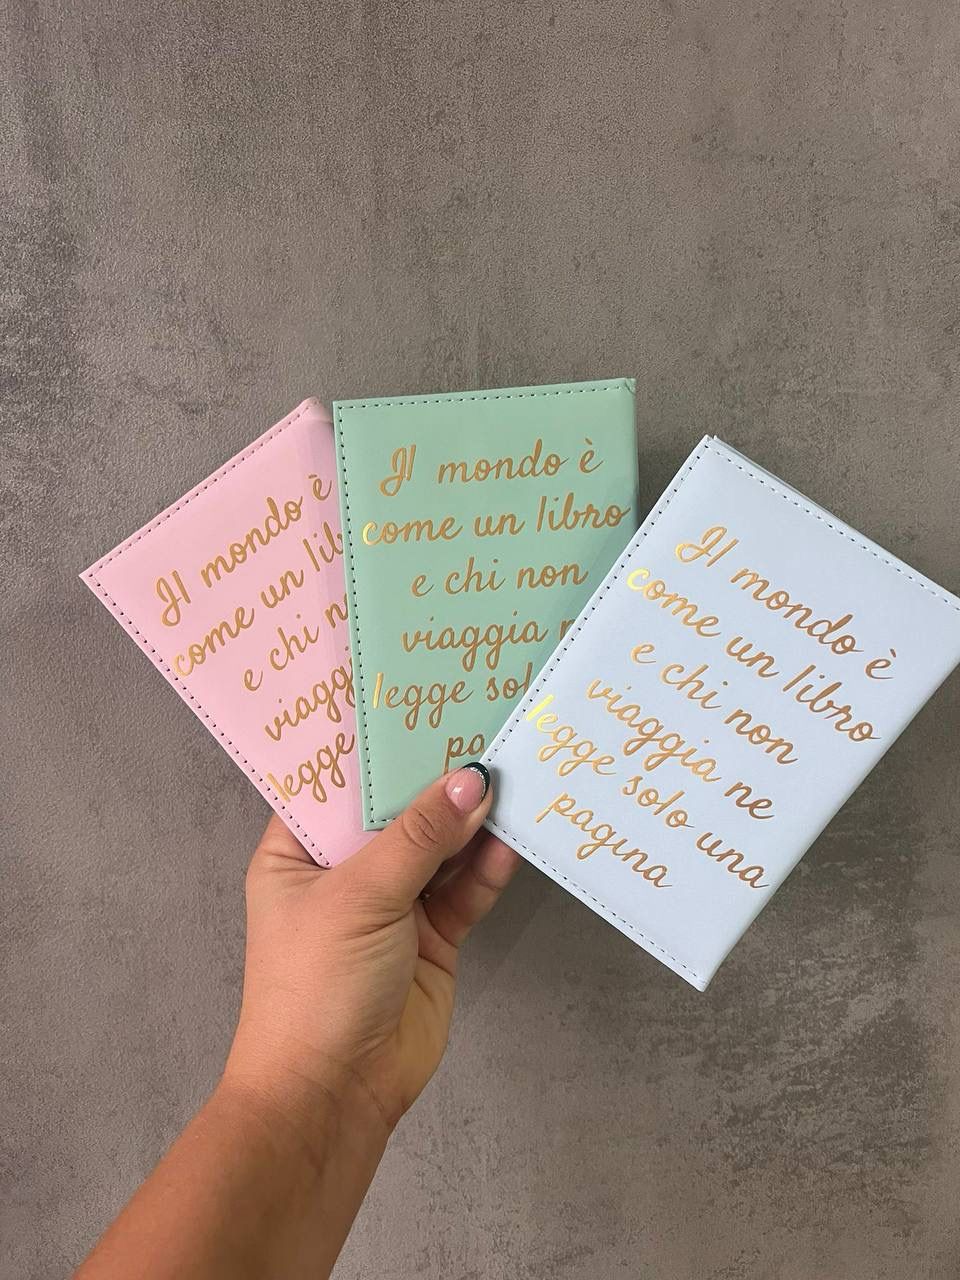 Il mondo è
come un
e chi
viaggia
legge
Il mondo è
come un libro
e chi non
viaggia
legge
Il mondo è
come un libro
e chi non
viaggia ne
legge solo una
pagina